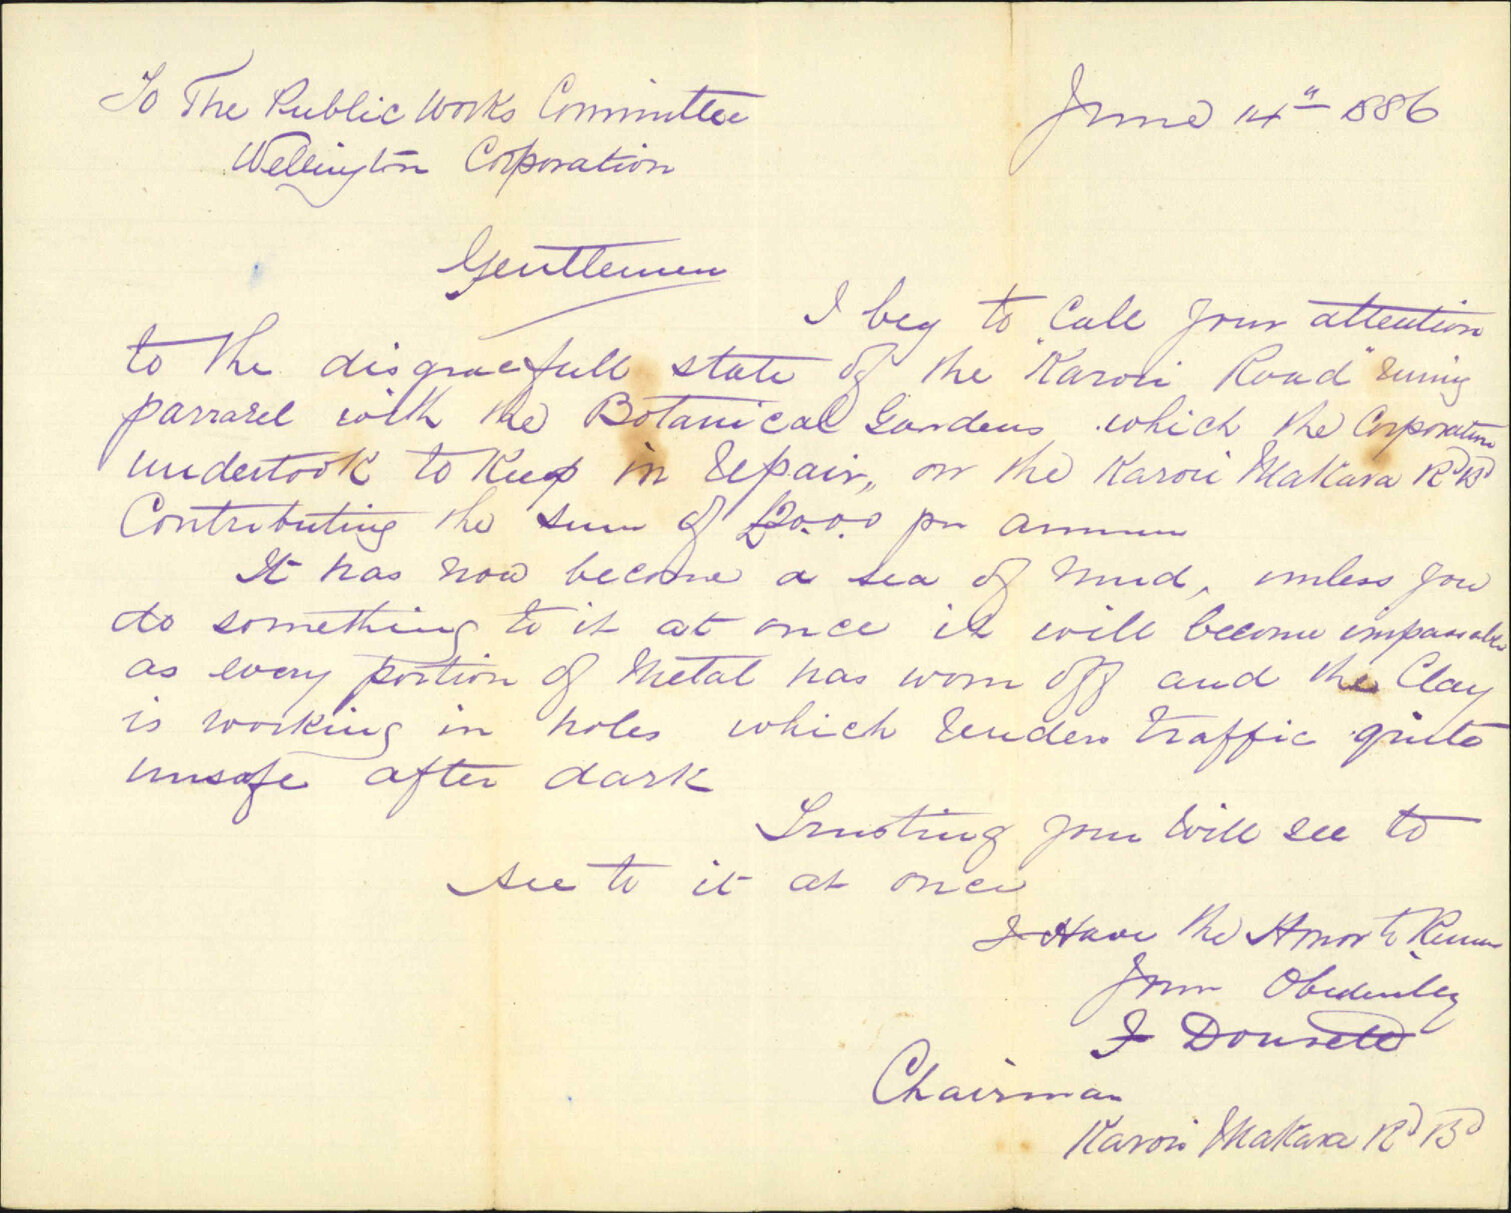 To The Public Works Committee
June 14" 1886
Wellington Corporation
Gentlemen
I beg to Call your attention
to the disgracefull state of the "Karori Road" runing
pararel with the Botanical Gardens which the Corporation
undertook to Keep in repair, on the Karori Makara Rd Bd
Contributing the sum of £20.0.0 per annum
It has now become a sea of mud, unless you
do something to it at once it will become impassable
as every portion of Metal has worn off and the Clay
is working in holes which renders traffic quite
unsafe after dark
Trusting you will see to
see to it at once
I Have the Honor to
Your
Chairman
Karori Makara Rd Bd